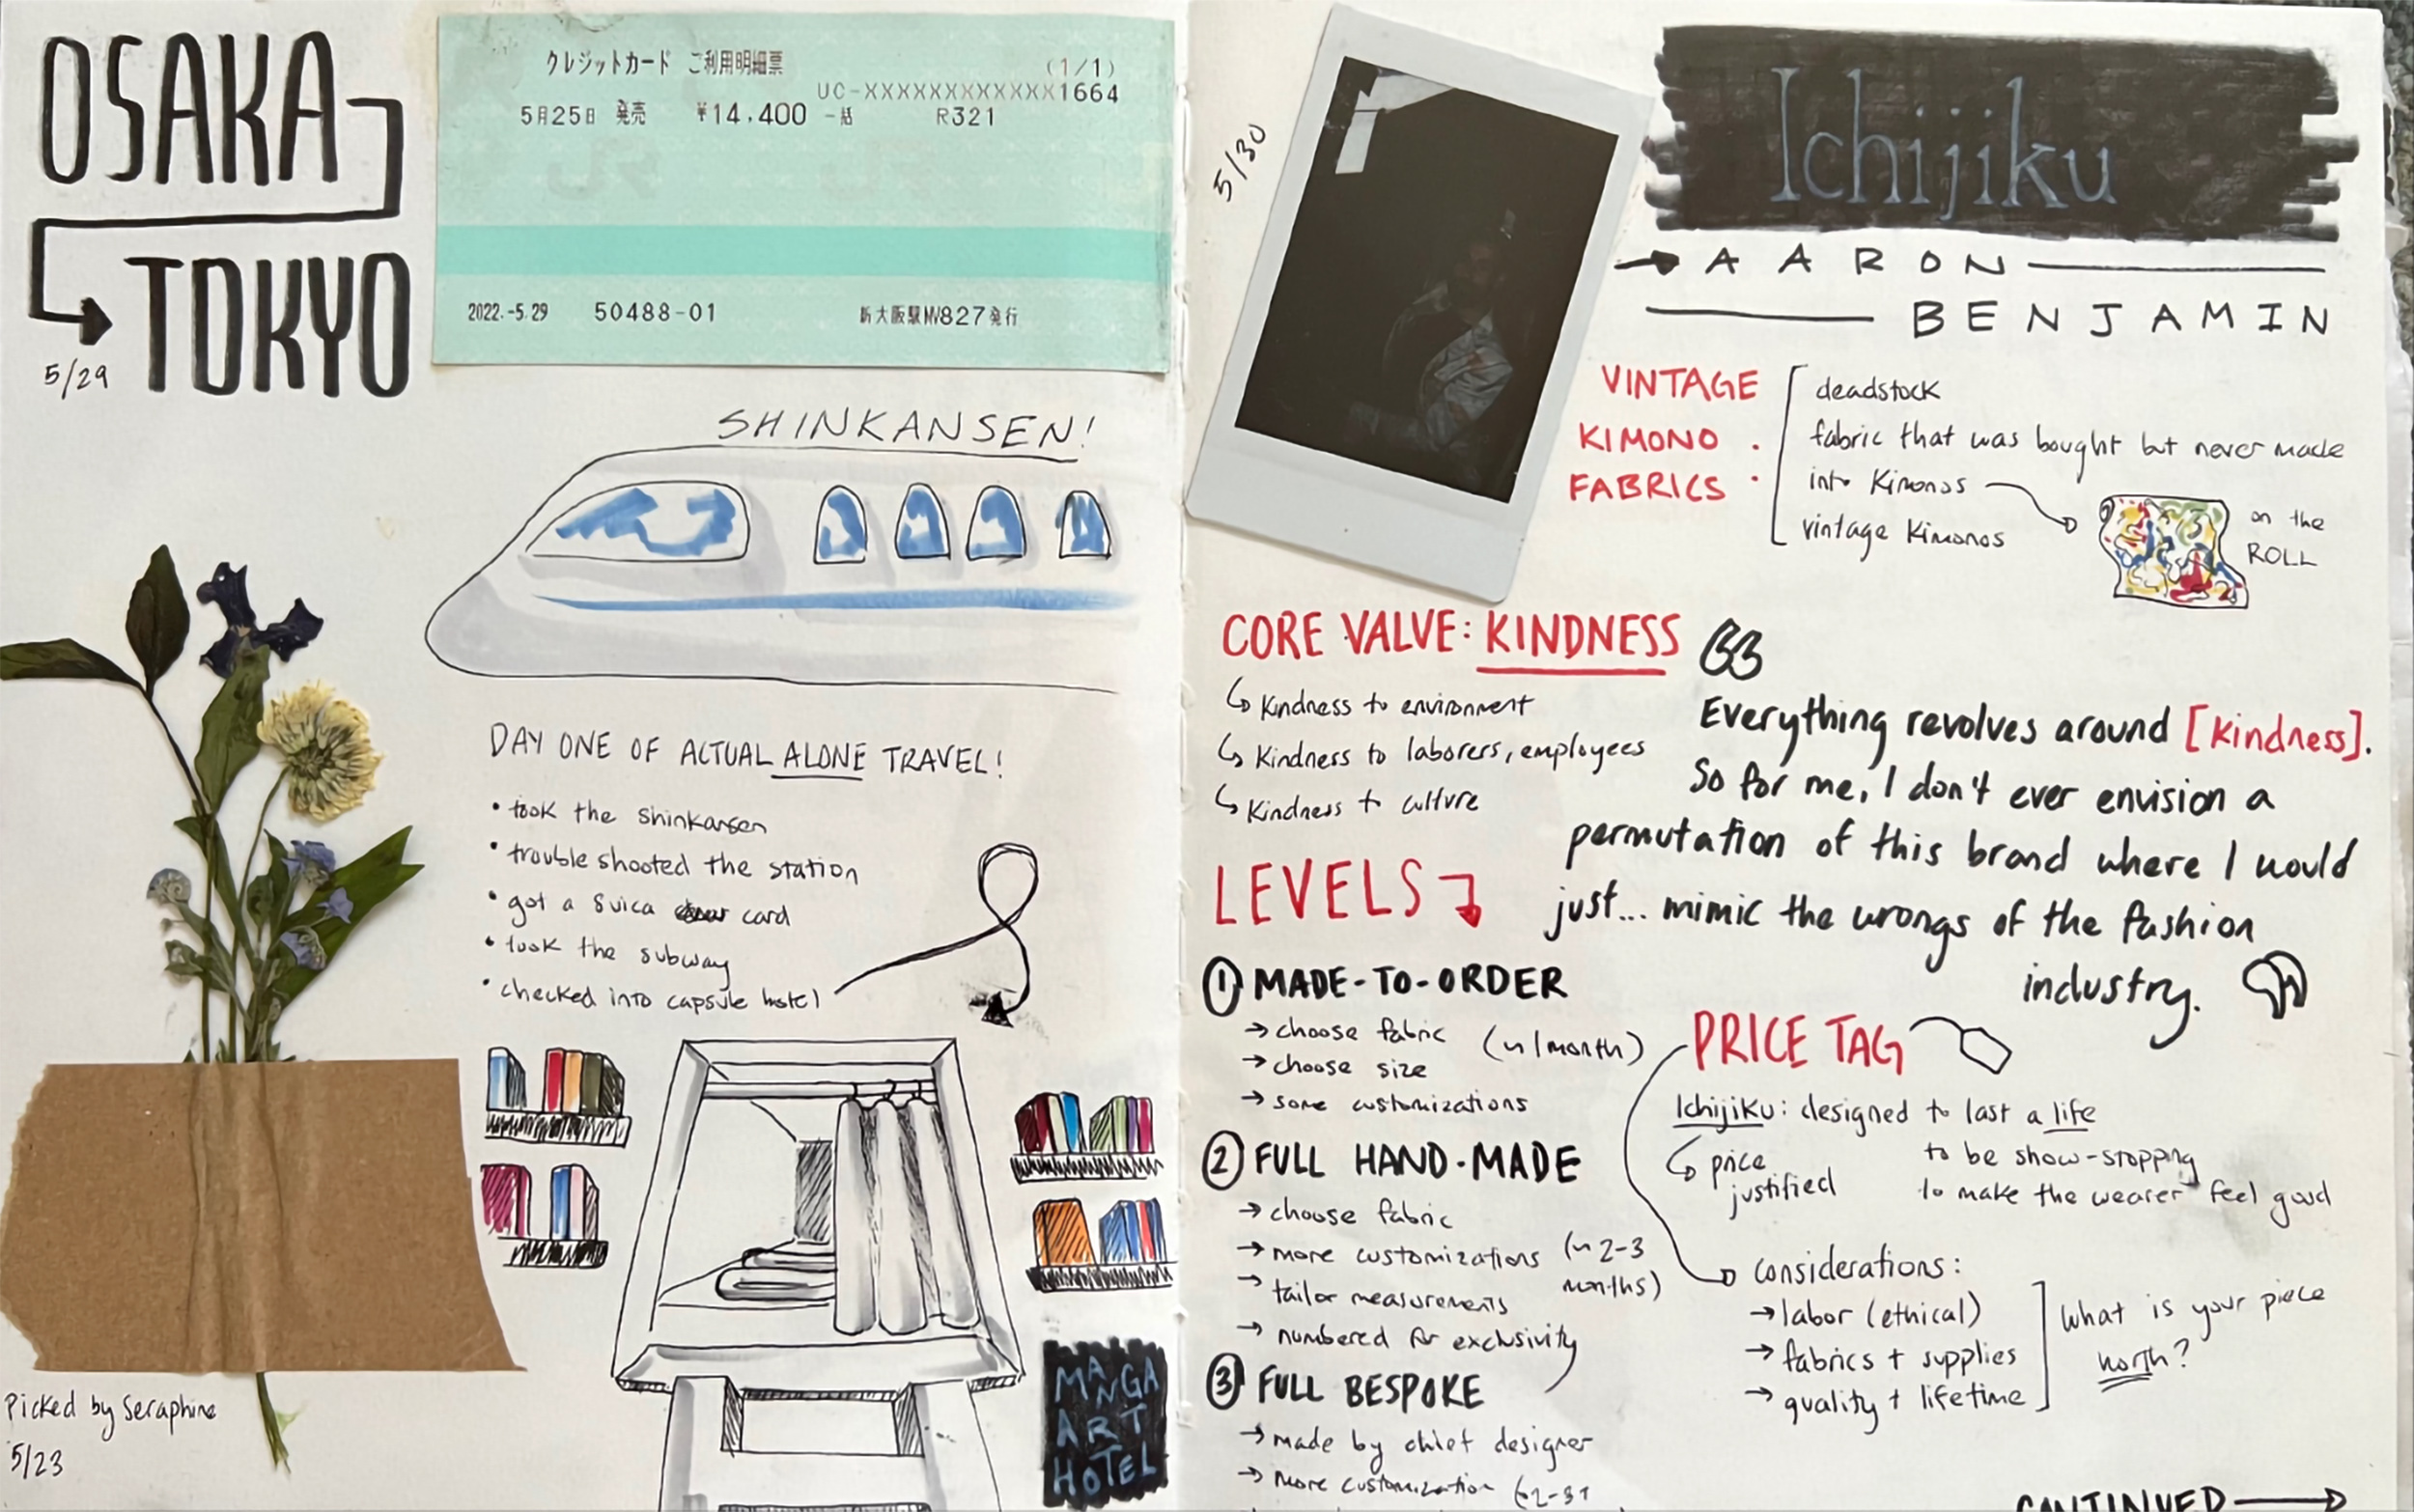 OSAKA
TOKYO
5/29
クレジットカード ご利用明細票
(1/1)
UC-XXXXXXXXXXXX1664
5月25日 発売 ¥14,400 一括 R321
2022.-5.29 50488-01 新大阪駅MV827発行
SHINKANSEN!
DAY ONE OF ACTUAL ALONE TRAVEL!
• took the shinkansen
• trouble shooted the station
• got a Suica card
• took the subway
• checked into capsule hotel
MANGA
ART
HOTEL
Picked by Seraphine
5/23
5/30
Ichijiku
AARON
BENJAMIN
VINTAGE
KIMONO
FABRICS
deadstock
fabric that was bought but never made
into Kimonos
vintage Kimonos
on the
ROLL
CORE VALVE: KINDNESS
Kindness to environment
Kindness to laborers, employees
Kindness to culture
Everything revolves around [kindness].
So for me, I don't ever envision a
permutation of this brand where I would
just... mimic the wrongs of the fashion
industry.
LEVELS
① MADE-TO-ORDER
→ choose fabric (~1 month)
→ choose size
→ some customizations
② FULL HAND-MADE
→ choose fabric
→ more customizations (~2-3
months)
→ tailor measurements
→ numbered for exclusivity
③ FULL BESPOKE
→ made by chief designer
→ more customization
PRICE TAG
Ichijiku: designed to last a life
to be show-stopping
to make the wearer feel good
price
justified
considerations:
→ labor (ethical)
→ fabrics + supplies
→ quality + lifetime
What is your piece
worth?
CONTINUED